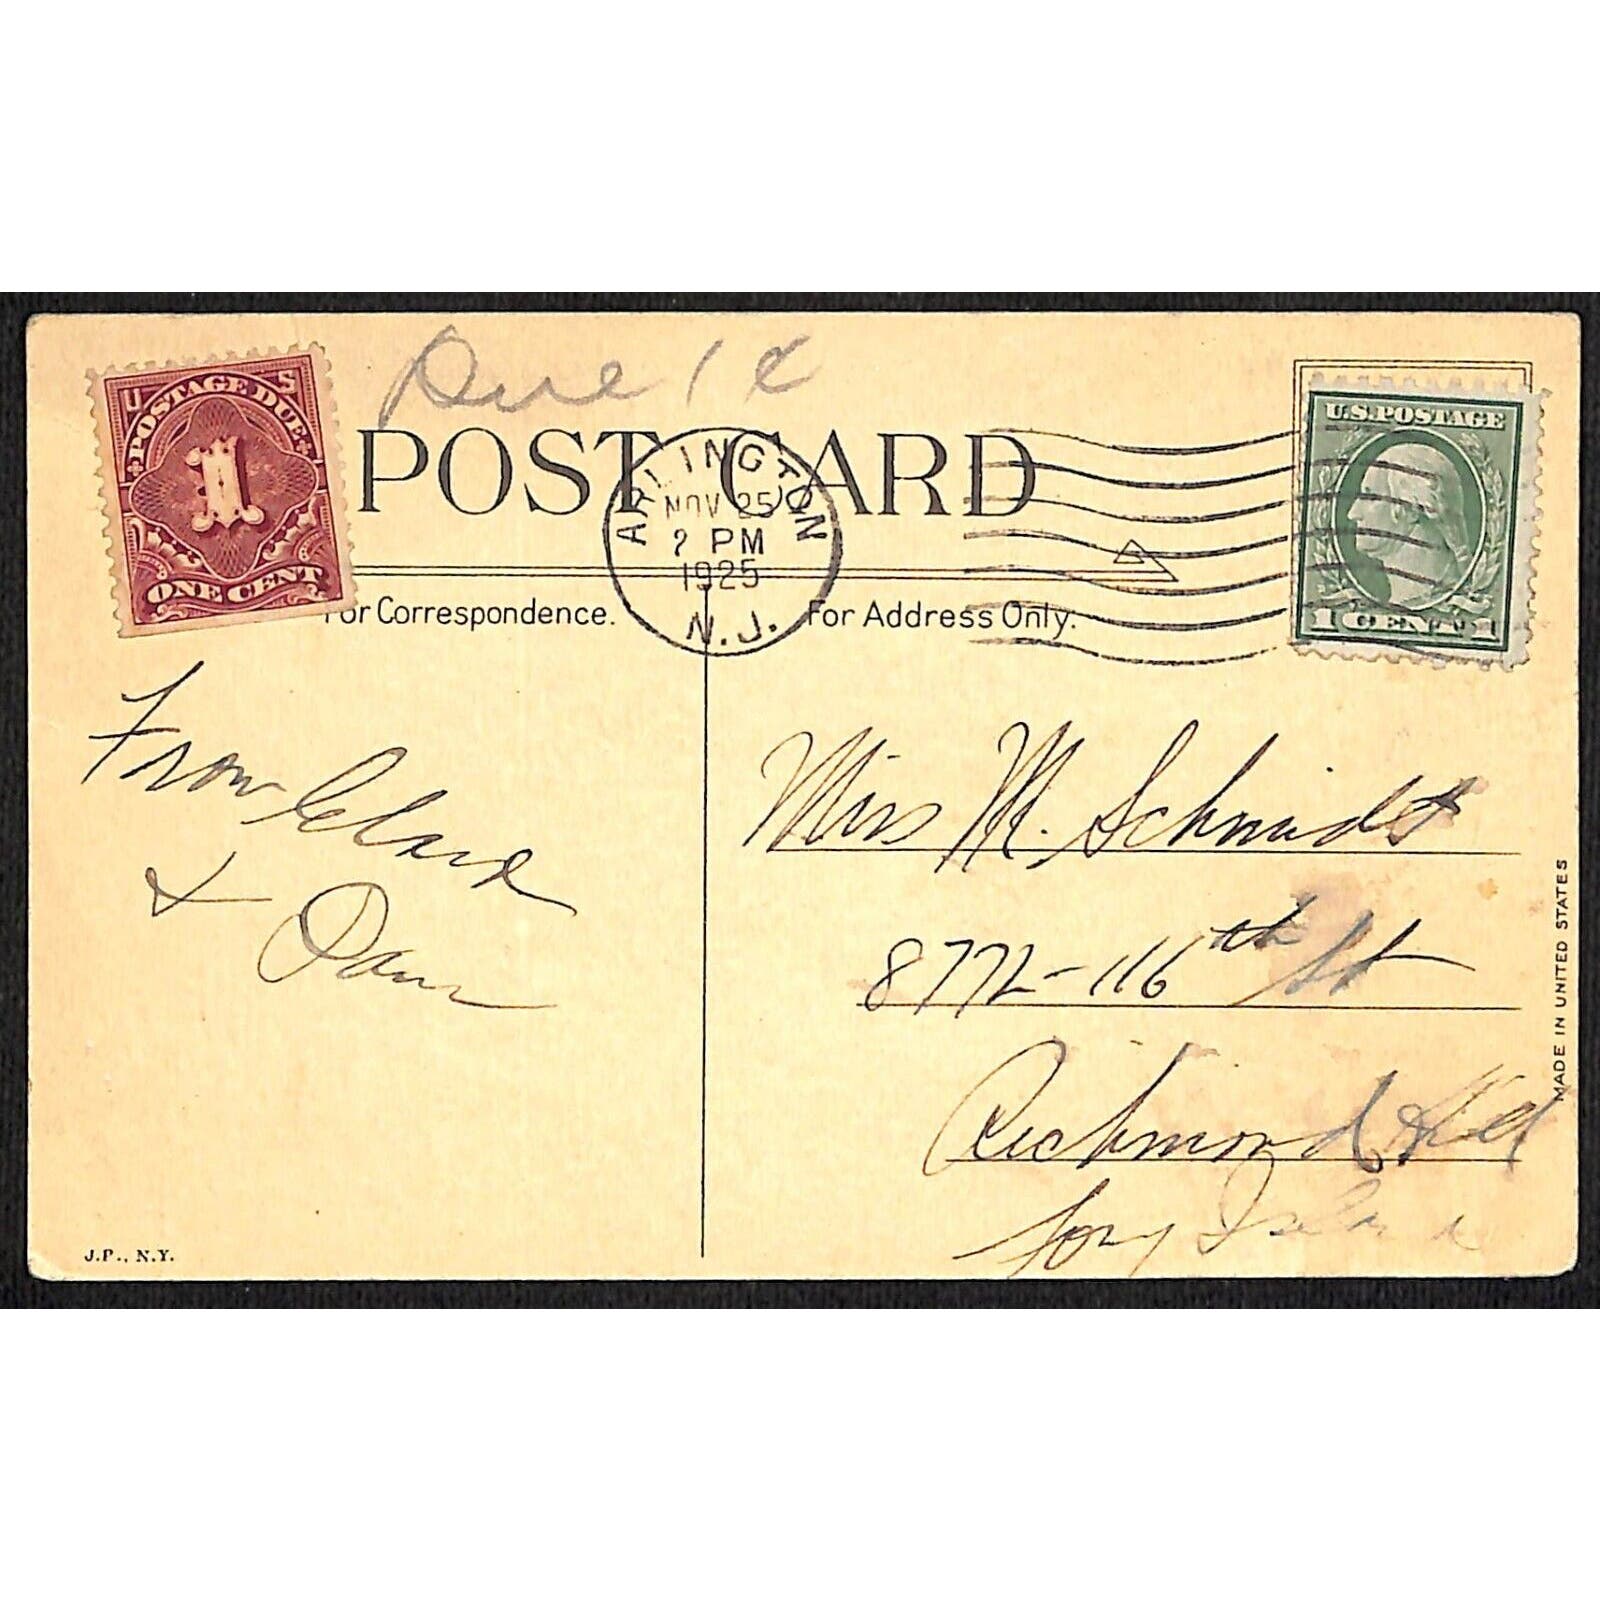 Due 1 ¢
U S
POSTAGE DUE
1
ONE CENT
POST CARD
ARLINGTON
NOV 25
2 PM
1925
N.J.
U.S.POSTAGE
1 CENT 1
For Correspondence.
For Address Only.
From Clara
& Dan
Miss M. Schmidt
8772-116th St
Richmond Hill
Long Island
MADE IN UNITED STATES
J.P., N.Y.